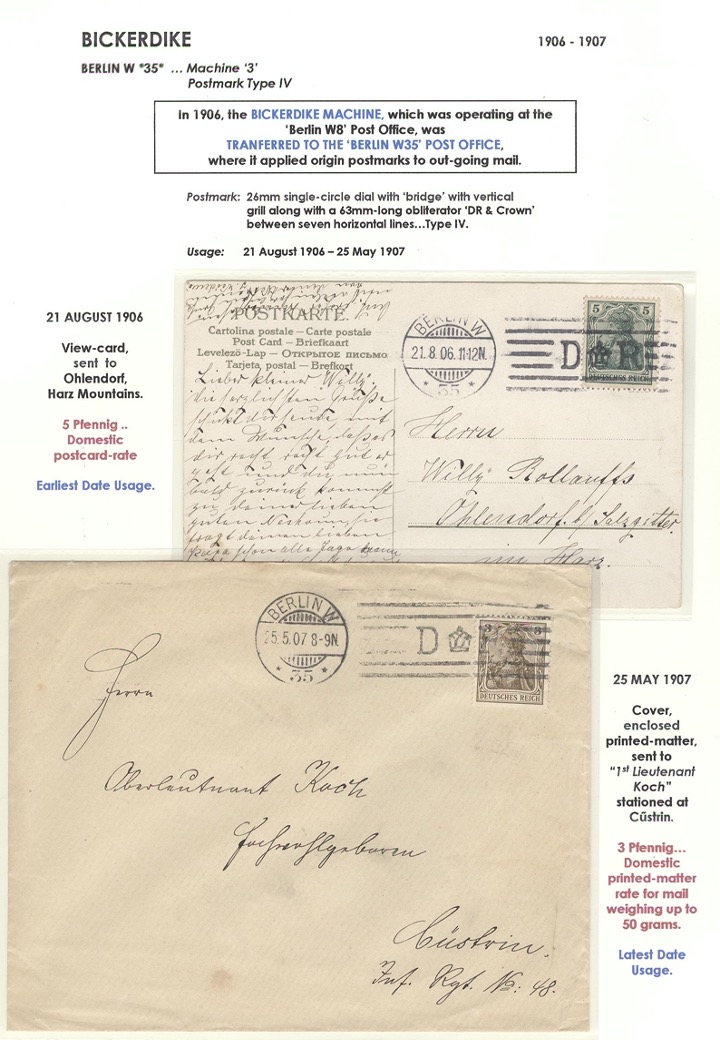 BICKERDIKE
1906 - 1907
BERLIN W *35* ... Machine ‘3’
Postmark Type IV
In 1906, the BICKERDIKE MACHINE, which was operating at the
‘Berlin W8’ Post Office, was
TRANFERRED TO THE ‘BERLIN W35’ POST OFFICE,
where it applied origin postmarks to out-going mail.
Postmark: 26mm single-circle dial with ‘bridge’ with vertical
grill along with a 63mm-long obliterator ‘DR & Crown’
between seven horizontal lines...Type IV.
Usage: 21 August 1906 – 25 May 1907
21 AUGUST 1906
View-card,
sent to
Ohlendorf,
Harz Mountains.
5 Pfennig ..
Domestic
postcard-rate
Earliest Date Usage.
POSTKARTE
Cartolina postale — Carte postale
Post Card — Briefkaart
Levelező-Lap — Открытое письмо
Tarjeta postal — Brefkort
Lieber kleiner Willy.
die herzlichsten Grüße
mit
dem Wunsche, daß es
dir recht recht gut
bald zurück kommst
zu deiner lieben
guten
deinen lieben
Papa schon alle Tage
BERLIN W
21.8.06.11-12N.
* 35 *
D R
5 5
DEUTSCHES REICH
Herrn
Willy Rollauffs
Ohlendorf b/ Salzgitter.
im Harz.
BERLIN W
25.5.07 8-9N.
* 35 *
D
3 3
DEUTSCHES REICH
Herrn
Oberleutnant Koch
Hochwohlgeboren
Cüstrin.
Inf. Rgt. No: 48.
25 MAY 1907
Cover,
enclosed
printed-matter,
sent to
“1st Lieutenant
Koch”
stationed at
Cűstrin.
3 Pfennig...
Domestic
printed-matter
rate for mail
weighing up to
50 grams.
Latest Date
Usage.